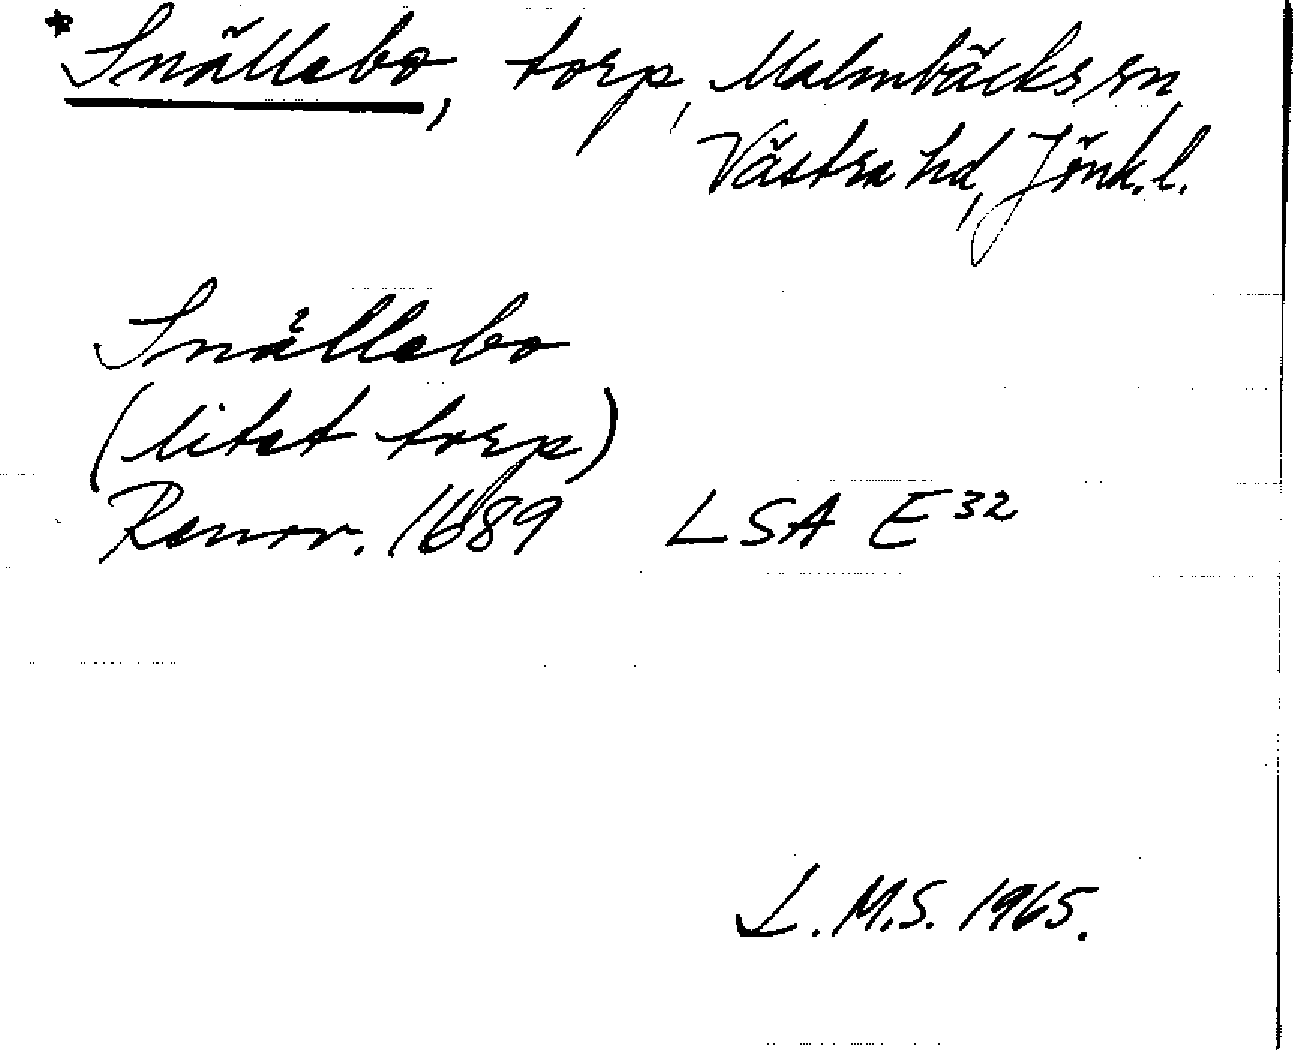 * Snällebo, torp, Malmbäcks sn,
Västra hd, Jönk. l.
Snällebo
(litet torp)
Renov. 1689 LSA E32
L. M.S. 1965.